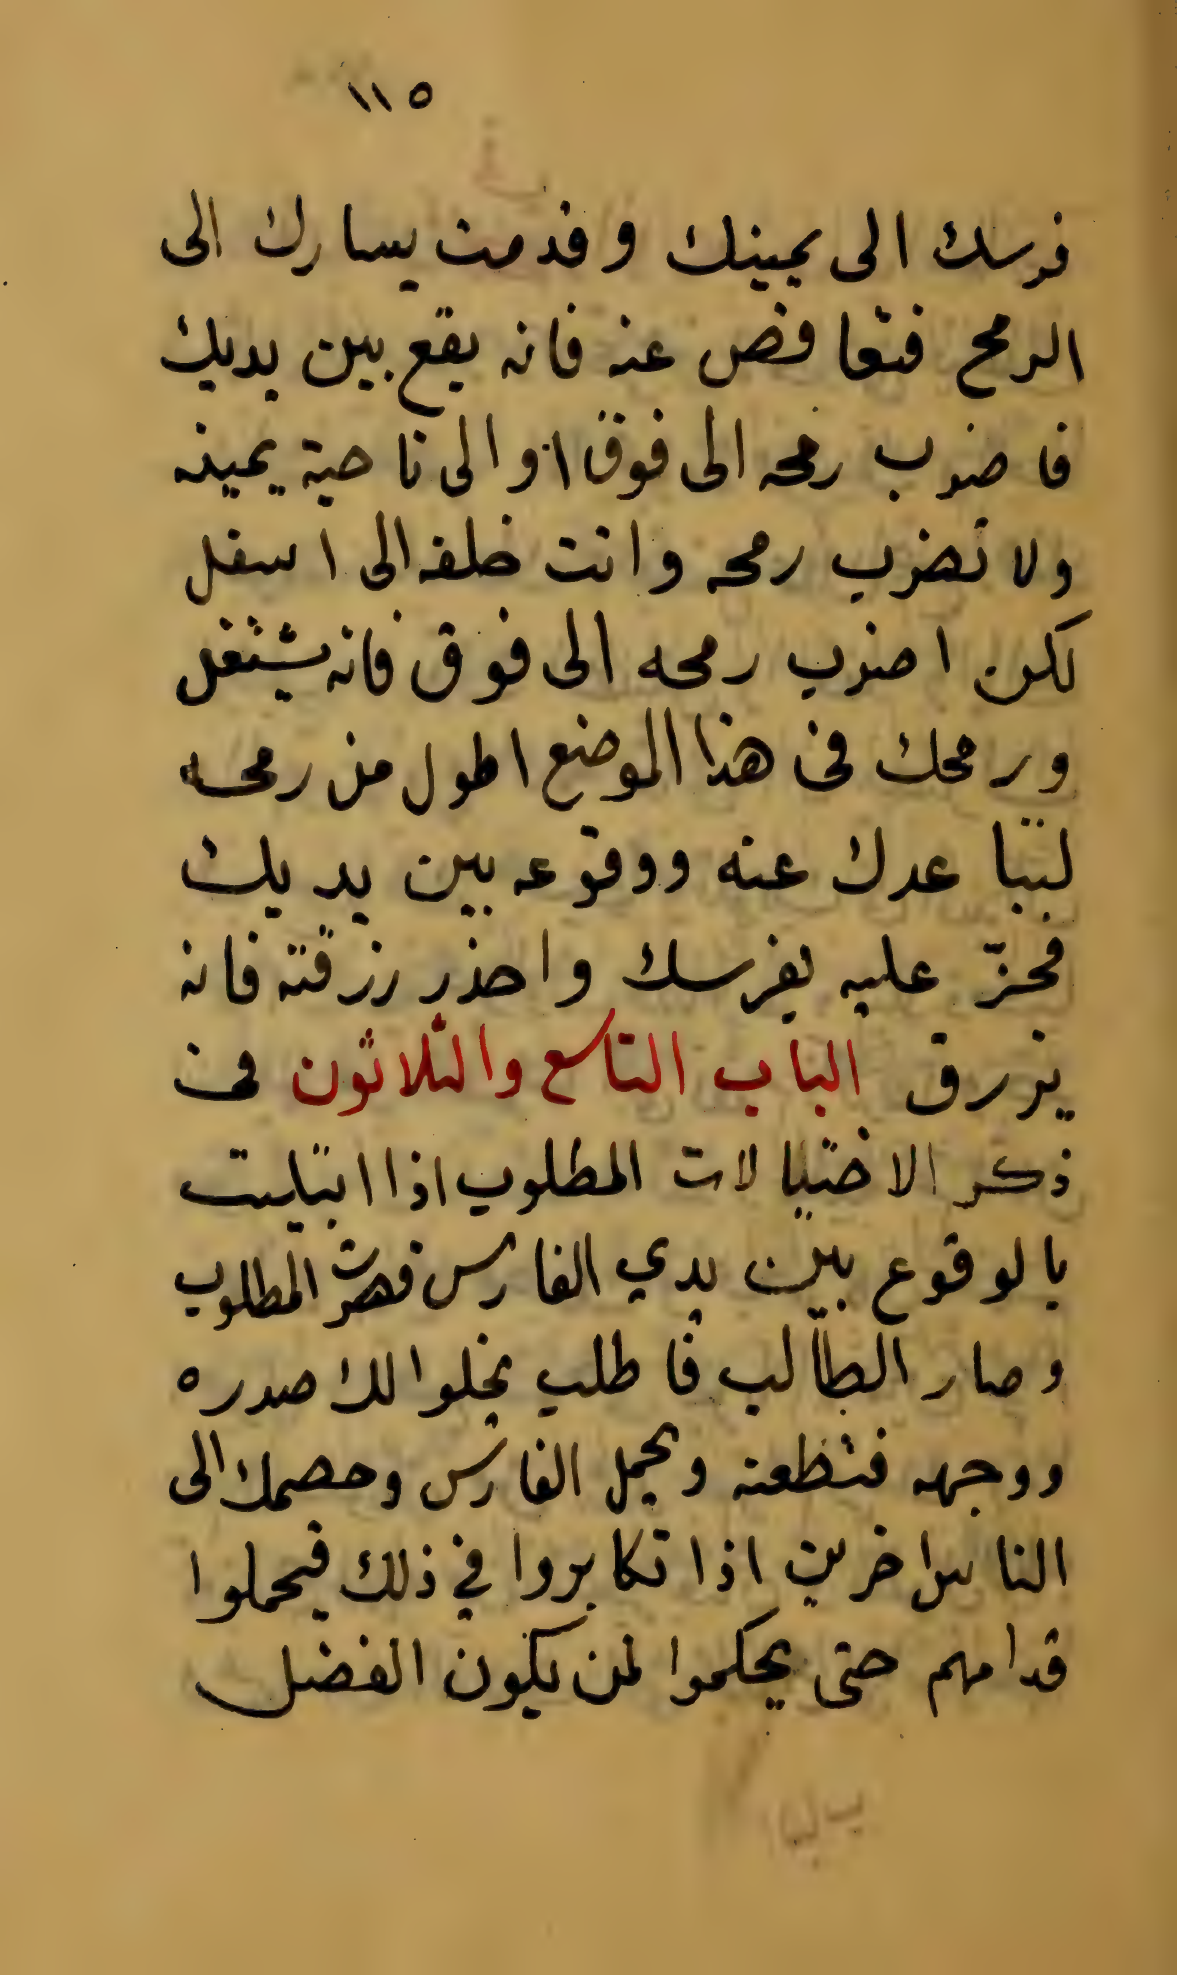 ١١٥
فرسك الى يمينك وقدمت يسارك الى
الرمح فتعافص عنه فانه يقع بين يديك
فاضرب رمحه الى فوق او الى ناحية يمينه
ولا تضرب رمحه وانت خلفه الى اسفل
لكن اضرب رمحه الى فوق فانه يشتغل
ورمحك فى هذا الموضع اطول من رمحه
لتباعدك عنه ووقوعه بين يديك
فحزّ عليه بفرسك واحذر زرقته فانه
يزرق الباب التاسع والثلاثون فى
ذكر الاختيالات المطلوب اذا ابتليت
بالوقوع بين يدي الفارس فصرت المطلوب
وصار الطالب فاطلب يخلوا لك صدره
ووجهه فتطعنه ويحمل الفارس وخصمك الى
الناس اخرين اذا تكابروا في ذلك فيحملوا
قدامهم حتى يحكموا لمن يكون الفضل